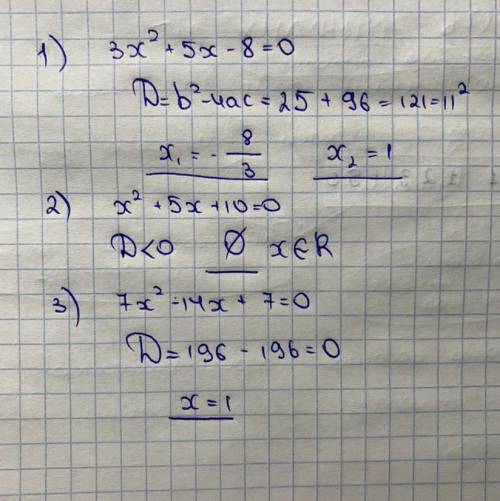 1) 3x² + 5x - 8 = 0
D = b² - 4ac = 25 + 96 = 121 = 11²
x₁ = - 8/3 x₂ = 1
2) x² + 5x + 10 = 0
D < 0 Ø x ∈ R
3) 7x² - 14x + 7 = 0
D = 196 - 196 = 0
x = 1